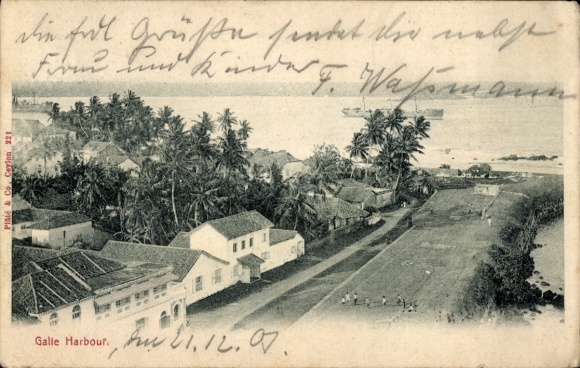 die frdl Grüße sendet dir nebst
Frau und Kinder F. Waßmann
Plâté & Co., Ceylon 221
Galle Harbour. den 21.12.01